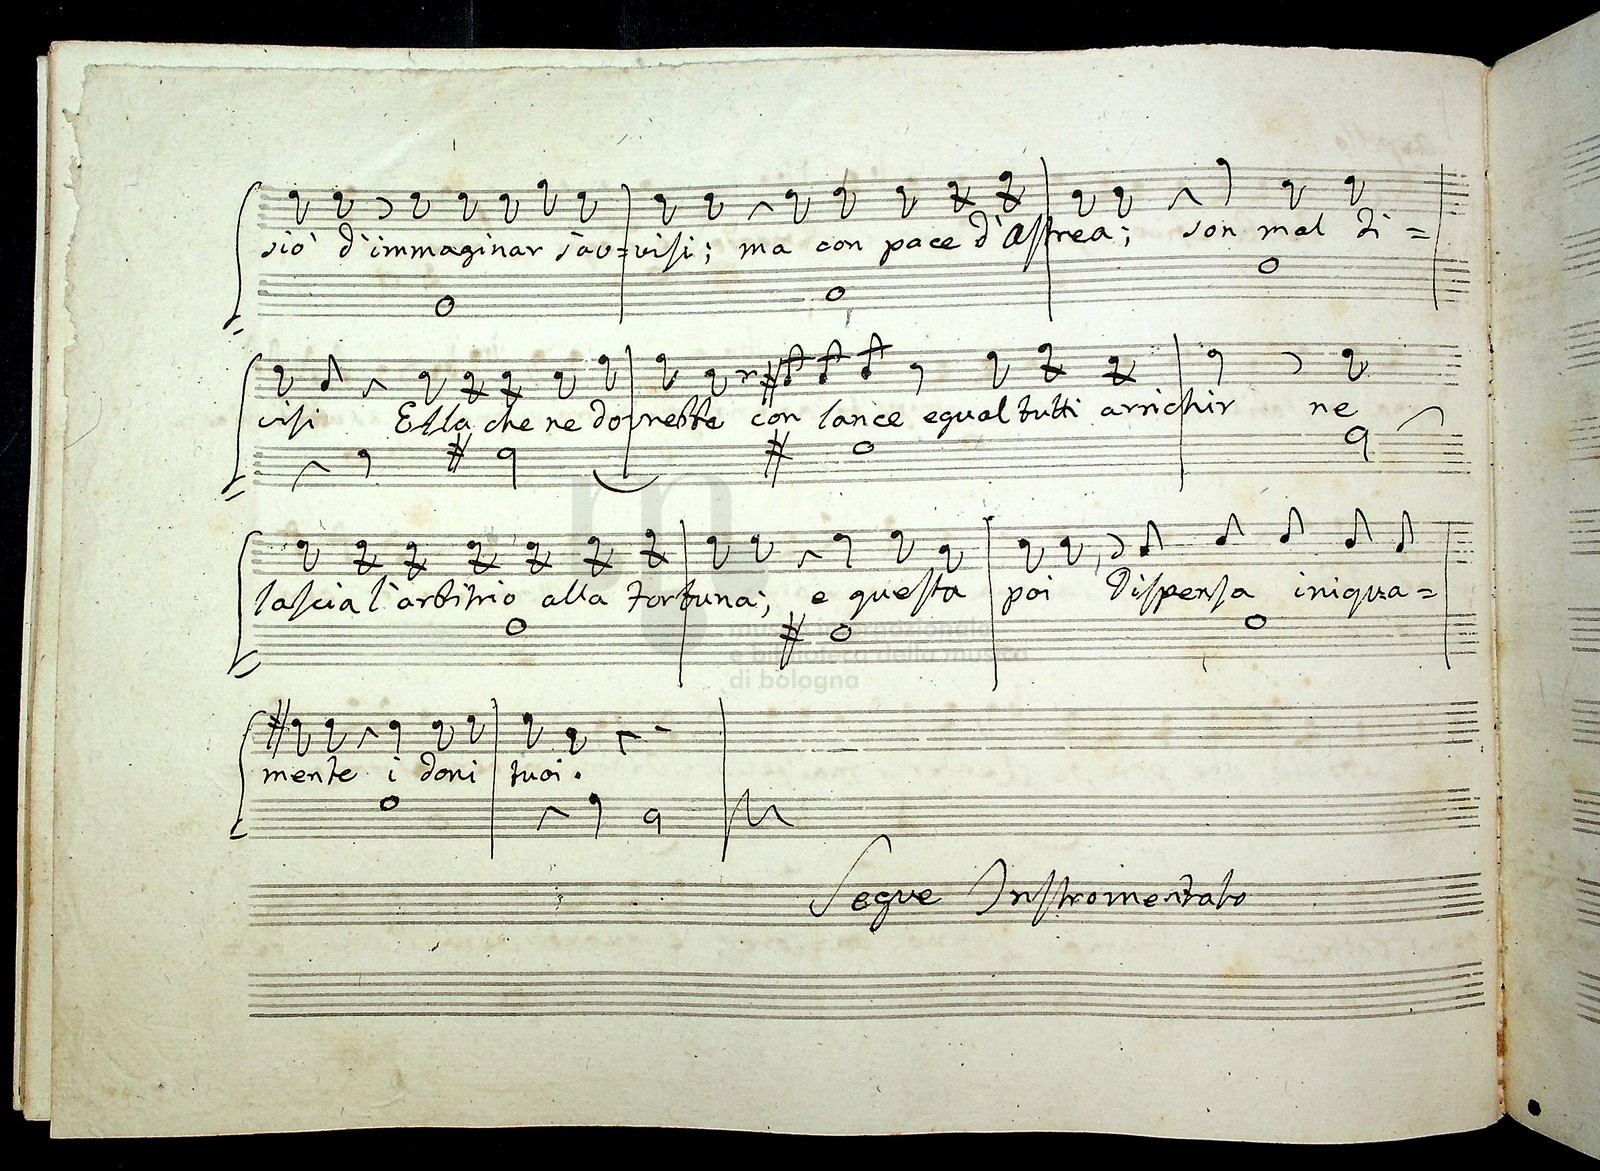 siò d'immaginar s'av=visi; ma con pace d'Astrea; son mal di=
visi Ella che ne dovrebbe con lance egual tutti arrichir ne
lascia l'arbitrio alla fortuna; e questa poi dispensa iniqua=
mente i doni tuoi.
Segue Instromentato
museo internazionale
e biblioteca della musica
di bologna